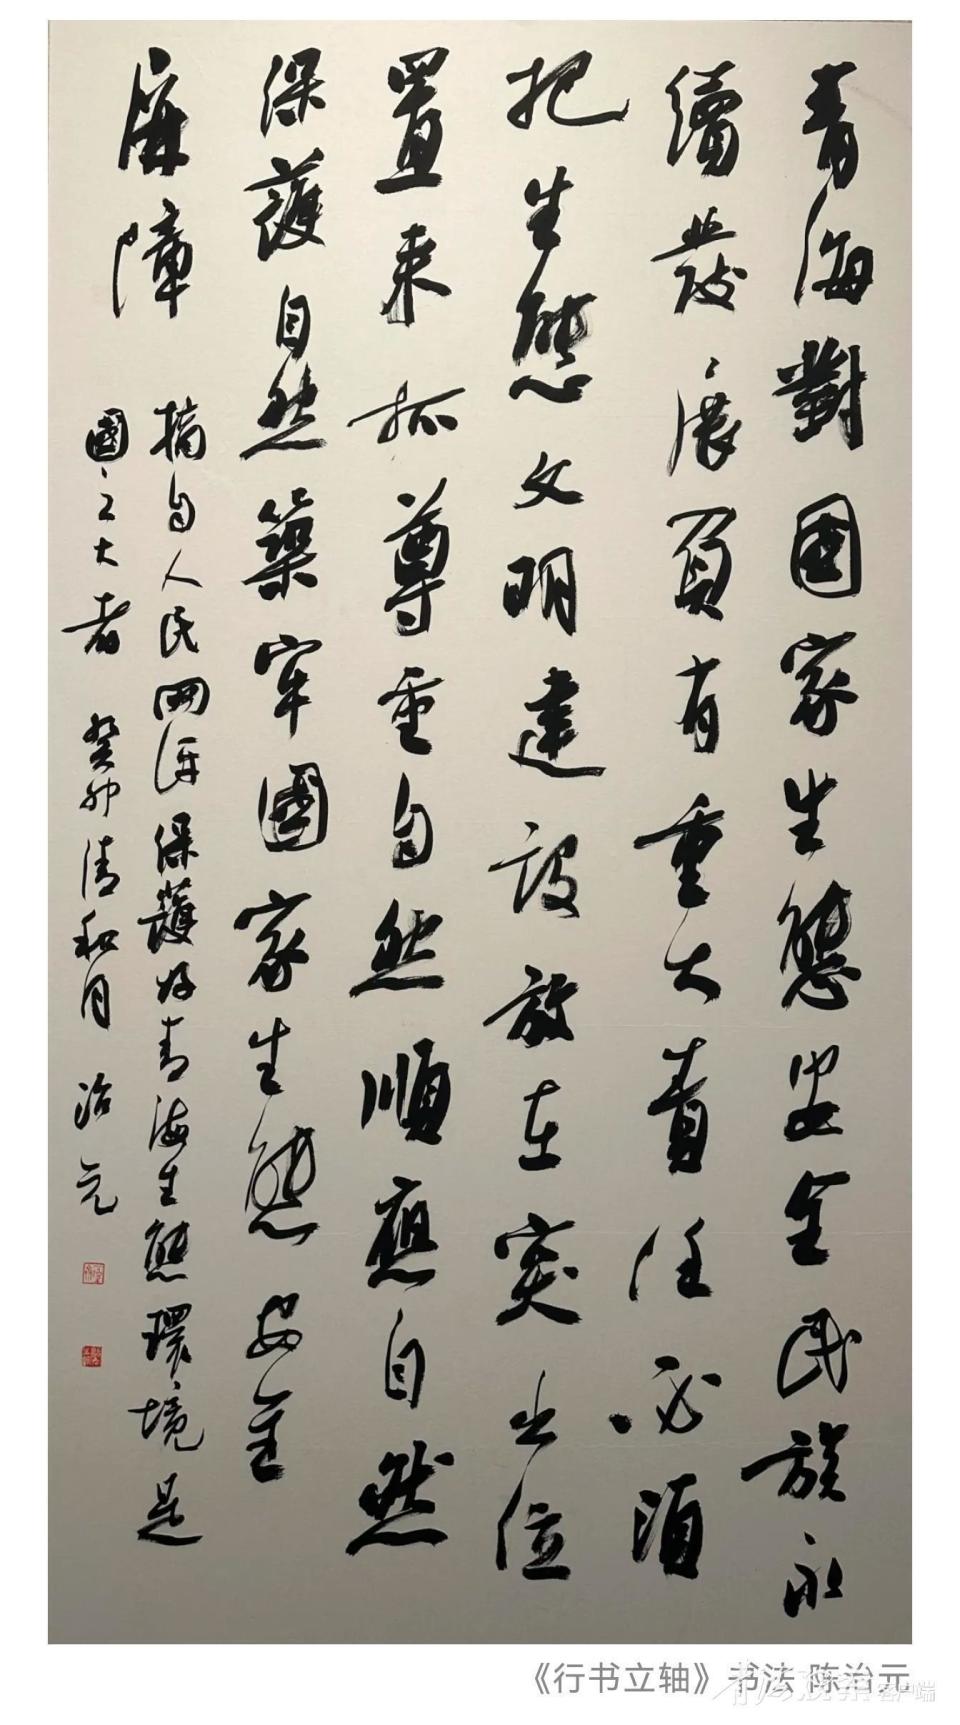 青海對國家生態安全民族永
續發展負有重大責任必須
把生態文明建設放在突出位
置来抓尊重自然順應自然
保護自然築牢國家生態安全
屏障
摘自人民网评保護好青海生態環境是
國之大者 癸卯清和月 治元
《行书立轴》书法 陈治元
青海观察客户端